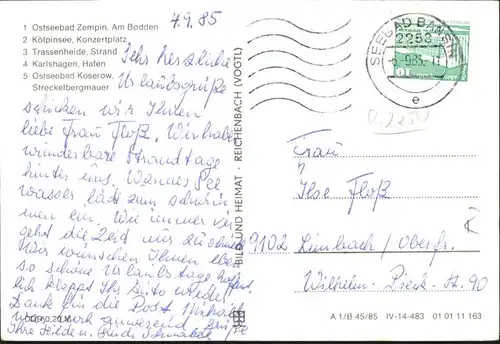 1 Ostseebad Zempin, Am Bodden
2 Kölpinsee, Konzertplatz
3 Trassenheide, Strand
4 Karlshagen, Hafen
5 Ostseebad Koserow, Streckelbergmauer
4.9.85
Sehr herzliche
Urlaubsgrüße
schicken wir Ihnen
liebe Frau Floß. Wir haben
wunderbare Strandtage
hinter uns. Warmes See
wasser lädt zum schwim
men ein. Wie immer
geht die Zeit nur zu schnell
Wir wünschen Ihnen eben
so schöne Urlaubstage
klappt Ihr
Dank für die Post
Ihre Hilde u. Rudi
BILD UND HEIMAT · REICHENBACH (VOGTL)
SEEBAD BANSIN
2253
-6.-9.85.-11
e
10
0.2250
Frau
Ilse Floß
9102 Limbach/Oberfr.
Wilhelm-Pieck-St. 90
A 1/B 45/85 IV-14-483 01 01 11 163